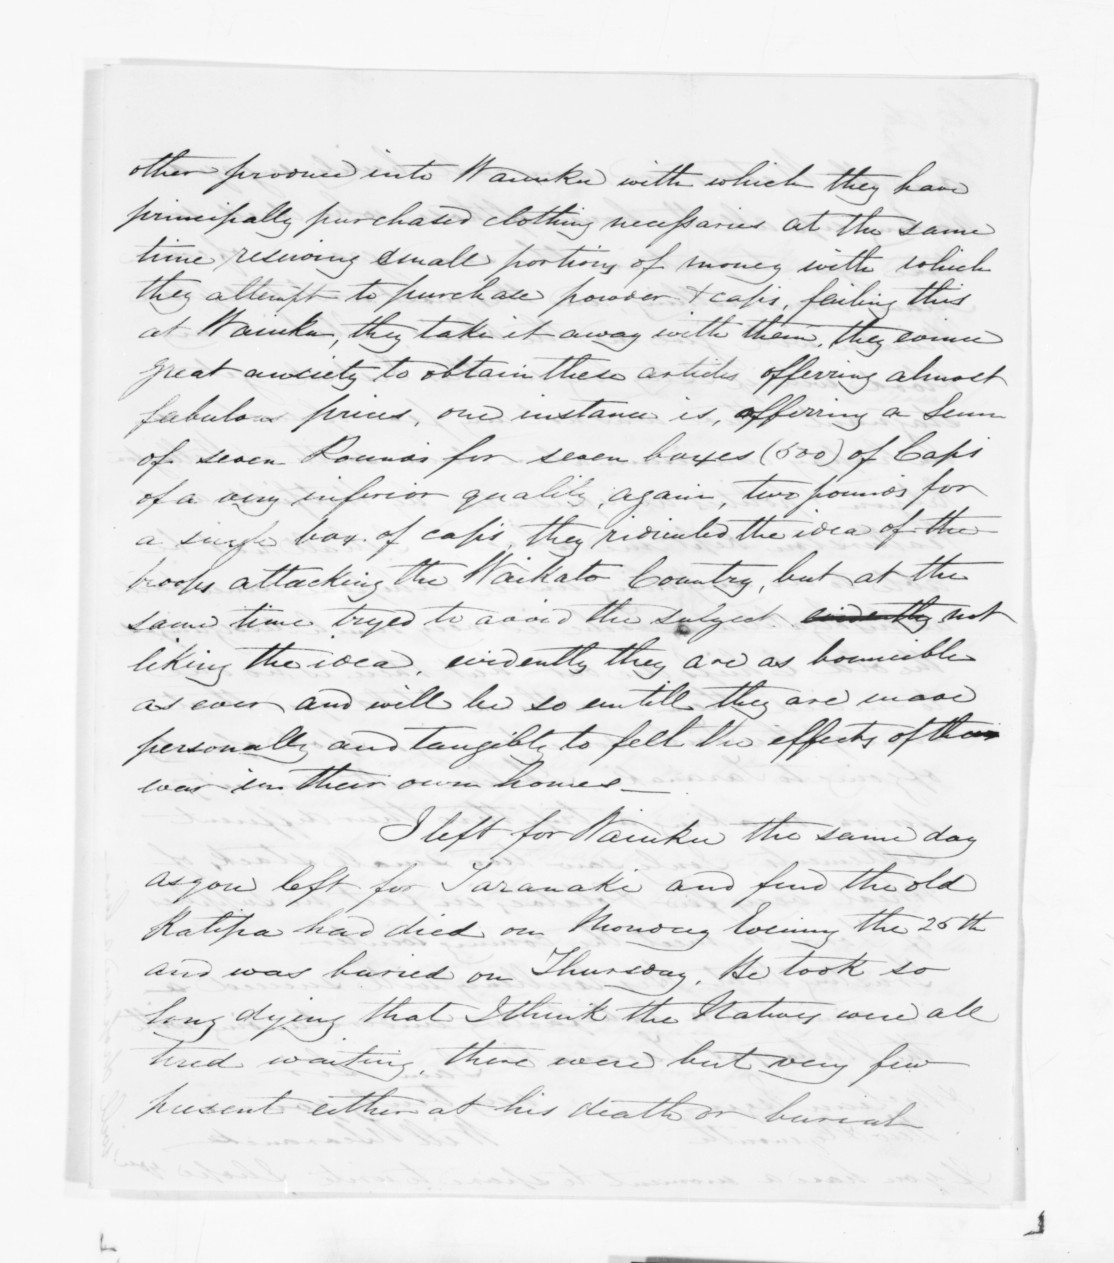 other produce into Waiuku with which they have
principally purchased clothing necessaries at the same
time reserving small portions of money with which
they attempt to purchase powder & caps, failing this
at Waiuku, they take it away with them, they evince
great anxiety to obtain these articles offering almost
fabulous prices, one instance is, offering a Sum
of seven Pounds for seven boxes (500) of Caps
of a very inferior quality, again, two pounds for
a single box of caps, they ridiculed the idea of the
troops attacking the Waikato Country, but at the
same time tryed to avoid the subject evidently not
liking the idea, evidently they are as bounceible
as ever and will be so untill they are made
personally and tangibly to felt the effects of the
war in their own homes_
I left for Waiuku the same day
as you left for Taranaki and find the old
Katipa had died on Monday Evening the 25th
and was buried on Thursday. He took so
long dying that I think the Natives were all
tired waiting, there were but very few
present either at his death or burial